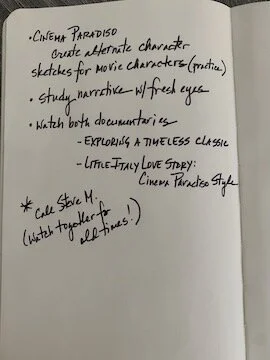 • CINEMA PARADISO
create alternate character
sketches for movie characters (practice)
• study narrative w/ fresh eyes
• watch both documentaries
- EXPLORING A TIMELESS CLASSIC
- LITTLE ITALY LOVE STORY:
Cinema Paradiso Style
* call Steve M.
(watch together for
old times!)